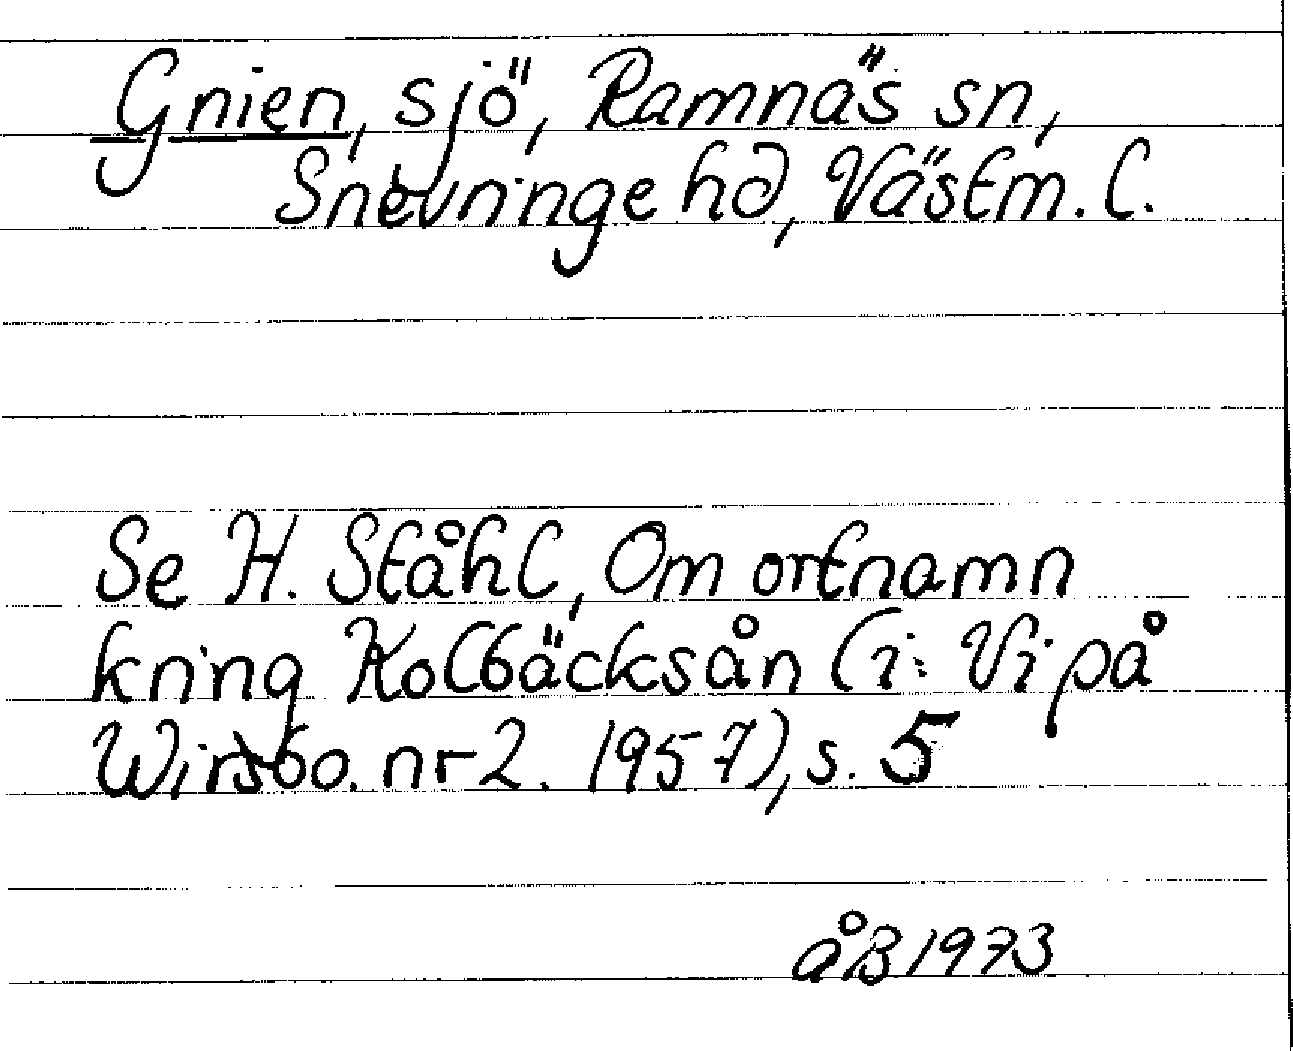 Gnien, sjö, Ramnäs sn,
Snevninge hd, Västm. l.
Se H. Ståhl, Om ortnamn
kring Kolbäcksån (i: Vi på
Wirsbo. nr 2. 1957), s. 5
åB 1973